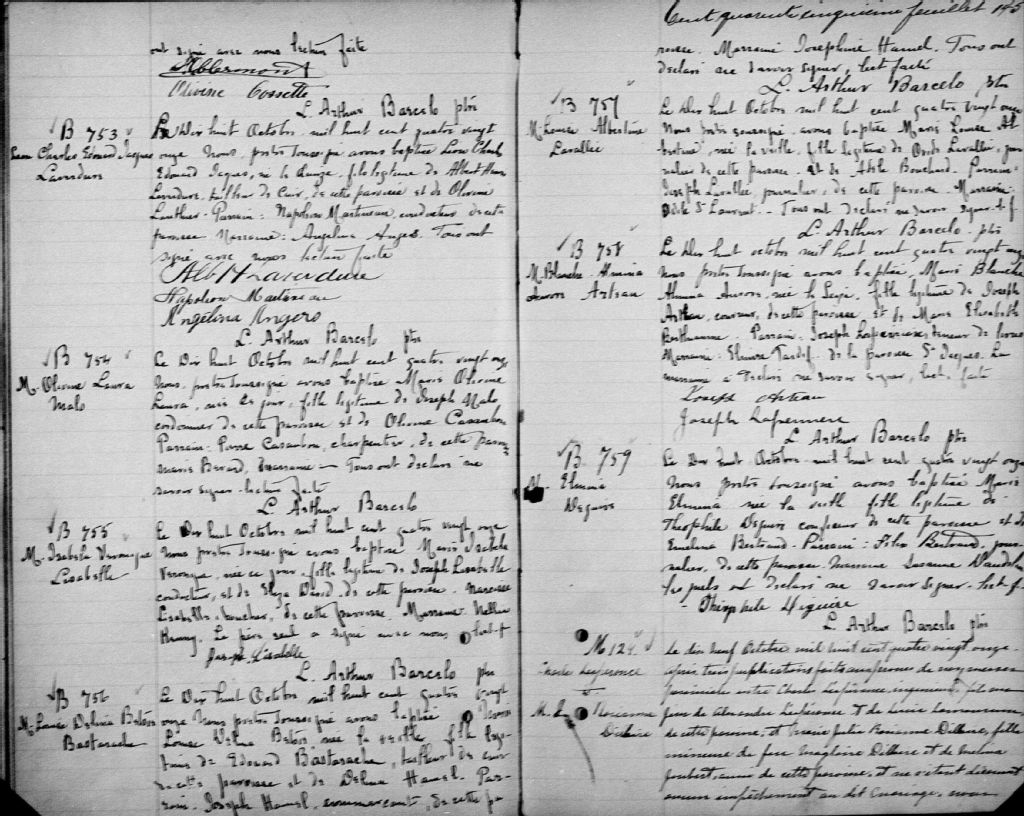 ont signé avec nous lecture faite
Olivine Cossette
L. Arthur Barcelo ptre
B 753
Leon Charles Edouard Jacques
Laverdure
Le Dix huit Octobre mil huit cent quatre vingt
onze Nous, prêtre soussigné avons baptisé Leon Charles
Edouard Jacques, né le quinze, fils légitime de Albert Henri
Laverdure, tailleur de cuir, de cette paroisse et de Olivine
Parrain: Napoléon Martineau, conducteur de cette
paroisse. Marraine: Angelina Angers. Tous ont
signé avec nous lecture faite
Alb H Laverdure
Napoleon Martineau
Angelina Angers
L. Arthur Barcelo ptre
B 754
M. Olivine Laura
Malo
Le Dix huit Octobre mil huit cent quatre vingt onze
Nous, prêtre soussigné avons baptisé Marie Olivine
Laura, née ce jour, fille légitime de Joseph Malo
cordonnier de cette paroisse et de Olivine Casaubon
Parrain: Pierre Casaubon, charpentier, de cette paroisse
Marie Bérard, marraine — Tous ont déclaré ne
savoir signer. lecture faite
L. Arthur Barcelo
B 755
M. Isabella Veronique
Lisabelle
Le Dix huit Octobre mil huit cent quatre vingt onze
Nous prêtre soussigné avons baptisé Marie Isabella
Veronique, née ce jour, fille légitime de Joseph Lisabelle
conducteur, et de Eliza Ward, de cette paroisse. Narcisse
Lisabelle, boucher, de cette paroisse. Marraine: Nellie
Le père seul a signé avec nous lect. f
Joseph Lisabelle
L. Arthur Barcelo ptre
B 756
M. Louise Delvina
Bastarache
Le Dix huit Octobre mil huit cent quatre vingt
onze Nous prêtre soussigné avons baptisé
Louise née la veille fille légi-
time de Edouard Bastarache, tailleur de cuir
de cette paroisse et de Delvina Hamel. Par-
rain: Joseph Hamel, commerçant, de cette pa
Cent quarante cinquième feuillet 145
roisse. Marraine Josephine Hamel. Tous ont
déclaré ne savoir signer, lect. faite
L. Arthur Barcelo ptre
B 757
M. Louise Albertine
Lavallée
Le Dix huit Octobre mil huit cent quatre vingt onze
Nous prêtre soussigné, avons baptisé Marie Louise Al
bertine, née la veille, fille légitime de Lavallée, jour
nalier de cette paroisse et de Adèle Bouchard. Parrain:
Joseph Lavallée journalier, de cette paroisse. Marraine:
St Laurent. — Tous ont déclaré ne savoir signer. l. f.
L. Arthur Barcelo. ptre
B 758
M. Blanche Almina
Aurore Arteau
Le Dix huit octobre mil huit cent quatre vingt onze
Nous prêtre soussigné avons baptisé, Marie Blanche
Almina Aurore, née le fille légitime de Joseph
Arteau, couvreur, de cette paroisse et de Marie Elisabeth
Parrain: Joseph Laferrière, teneur de livres
Marraine: Elmire Tardif de la paroisse St Jacques. La
marraine a déclaré ne savoir signer, lect. faite
Joseph Arteau
Joseph Laferriere
L Arthur Barcelo ptre
B 759
M. Elmina
Deguire
Le Dix huit Octobre mil huit cent quatre vingt onze
Nous prêtre soussigné avons baptisé Marie
Elmina née la veille fille légitime de
Théophile Deguire confiseur de cette paroisse et de
Emelina Bertrand. Parrain: Félix Bertrand, jour-
nalier, de cette paroisse. Marraine Susanne
lesquels ont déclaré ne savoir signer. lect. f.
Théophile Diguire
L. Arthur Barcelo ptre
M 124
Charles
et
M. J. Rosianna
Dillaire
Le dix neuf Octobre mil huit cent quatre vingt onze
après trois publications faites aux prônes de nos messes
paroissiales entre Charles ingénieur, fils ma
jeur de Alexandre et de
de cette paroisse, et Marie Julie Rosianna Dillaire, fille
mineure de feu Magloire Dillaire et de Melina
Joubert, aussi de cette paroisse, et ne s'étant découvert
aucun empêchement au dit mariage, nous